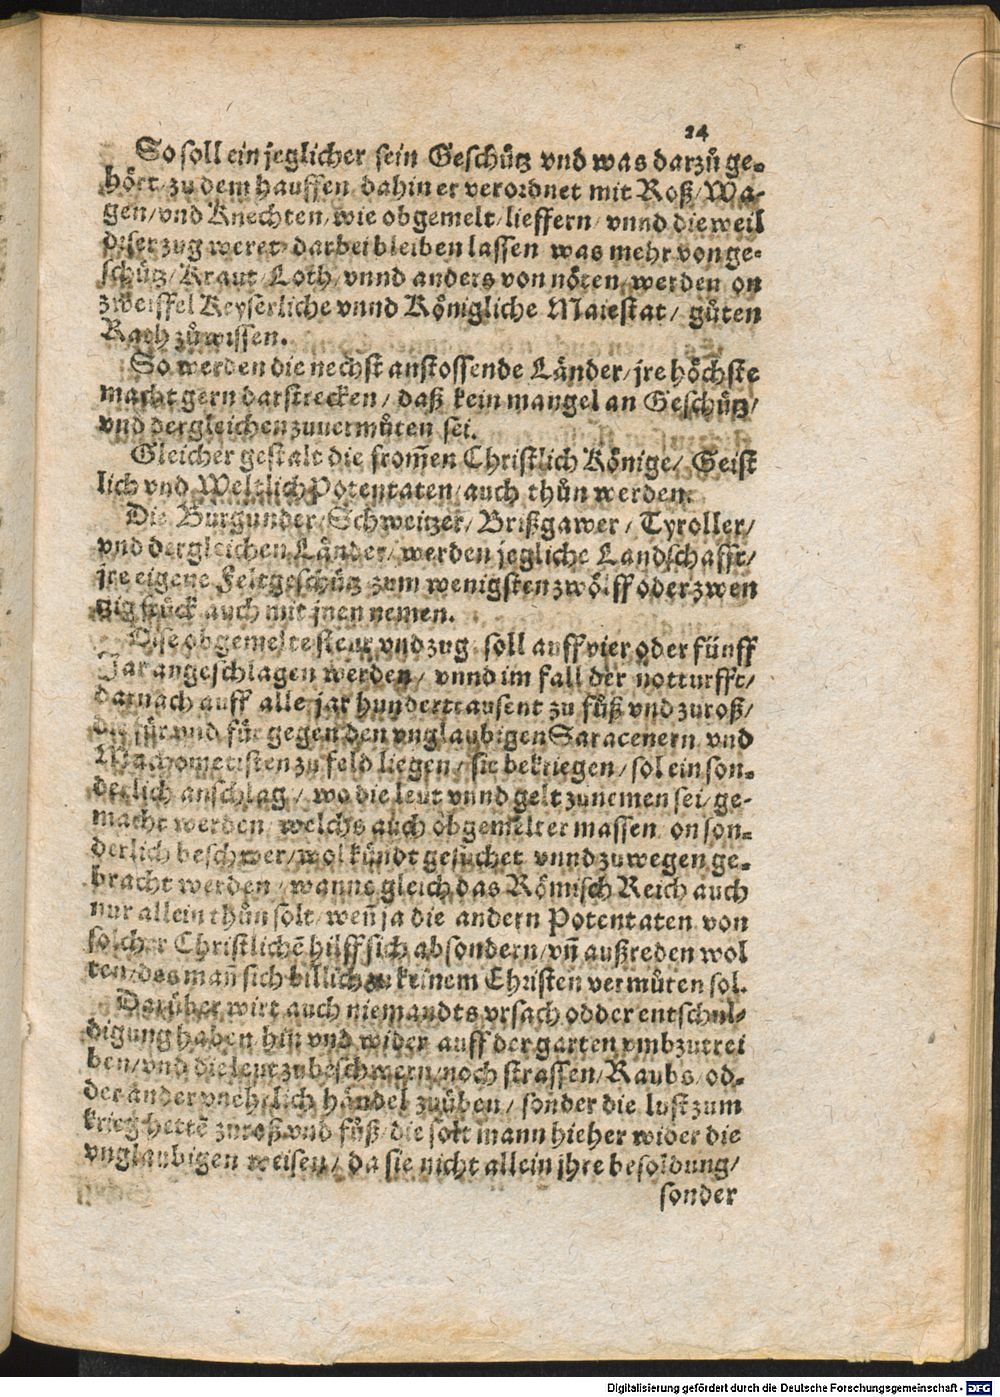 24
So soll ein jeglicher sein Geschütz vnd was darzů ge-
hört/ zu dem hauffen dahin er verordnet mit Roß/ Wa-
gen/ vnd Knechten/ wie obgemelt/ lieffern/ vnnd die weil
diser zug weret/ darbei bleiben lassen was mehr von ge-
schütz/ Kraut/ Loth/ vnnd anders von nöten/ werden on
zweiffel Keyserliche vnnd Königliche Maiestat/ gůten
Rath zů wissen.
So werden die nechst anstossende Länder/ jre höchste
macht gern darstrecken/ daß kein mangel an Geschütz/
vnd dergleichen zuuermůten sei.
Gleicher gestalt die from̃en Christlich Könige/ Geist
lich vnd Weltlich Potentaten/ auch thůn werden.
Die Burgunder/ Schweitzer/ Brißgawer/ Tyroller/
vnd dergleichen Länder/ werden jegliche Landschafft/
jre eigene Feltgeschütz zum wenigsten zwölff oder zwen
tzig stuck auch mit jnen nemen.
Dise obgemelte steur vnd zug soll auff vier oder fünff
Jar angeschlagen werden/ vnnd im fall der notturfft/
darnach auff alle jar hunderttausent zu fůß vnd zu roß/
die für vnd für gegen den vnglaubigen Saracenern vnd
Machometisten zu feld liegen/ sie bekriegen/ sol ein son-
derlich anschlag/ wo die leut vnnd gelt zunemen sei/ ge-
macht werden/ welchs auch obgemelter massen on son-
derlich beschwer/ wol kündt gesuchet vnnd zuwegen ge-
bracht werden/ wanne gleich das Römisch Reich auch
nur allein thůn solt/ weñ ja die andern Potentaten von
solcher Christlichē hilff sich absondern/ vñ außreden wol
ten/ des mañ sich billich zu keinem Christen vermůten sol.
Darüber wirt auch niemandts vrsach odder entschul-
digung haben hin vnd wider auff der garten vmbzutrei
ben/ vnd die leut zubeschwern/ noch strassen/ Raubs/ od-
der ander vnehrlich händel zuüben/ sonder die lust zum
krieg hettē zu roß vnd fůß/ die solt mann hieher wider die
vnglaubigen weisen/ da sie nicht allein jhre besoldung/
sonder
Digitalisierung gefördert durch die Deutsche Forschungsgemeinschaft - DFG